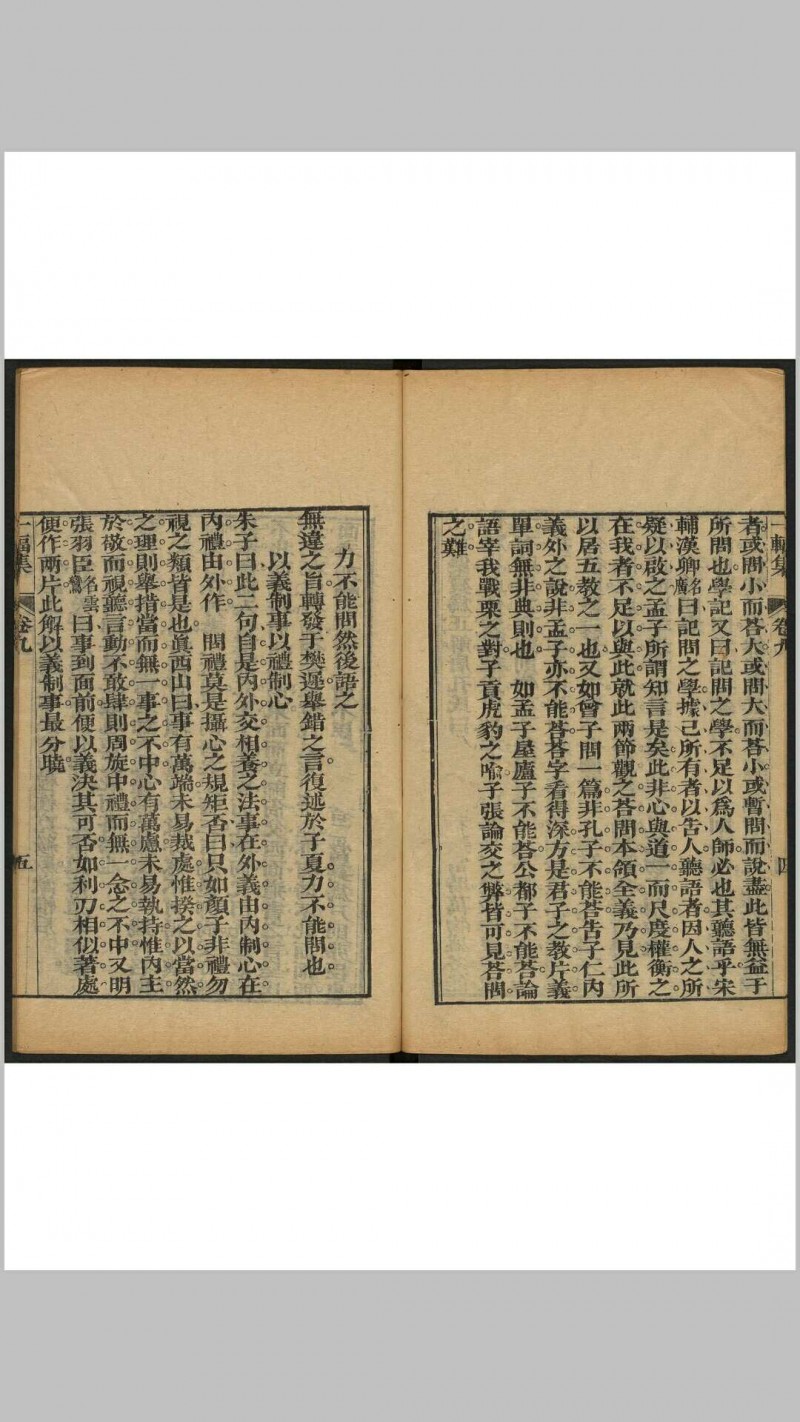 一輻集 卷九 四
者或問小而荅大或問大而荅小或暫問而說盡此皆無益于
所問也學記又曰記問之學不足以爲人師必也其聽語乎宋
輔漢卿名廣曰記問之學據己所有者以告人聽語者因人之所
疑以啟之孟子所謂知言是矣此非心與道一而尺度權衡之
在我者不足以與此就此兩節觀之荅問本領全義乃見此所
以居五教之一也又如曾子問一篇非孔子不能荅告子仁內
義外之說非孟子亦不能荅荅字看得深方是君子之教片義
單詞無非典則也　如孟子屋廬子不能荅公都子不能荅論
語宰我戰栗之對子貢虎豹之喻子張論交之弊皆可見荅問
之難
力不能問然後語之
無違之旨轉發于樊遲舉錯之言復述於子夏力不能問也
以義制事以禮制心
朱子曰此二句自是內外交相養之法事在外義由內制心在
內禮由外作　問禮莫是攝心之規矩否曰只如顏子非禮勿
視之類皆是也眞西山曰事有萬端未易裁處惟揆之以當然
之理則舉措當而無一事之不中心有萬慮未易執持惟內主
於敬而視聽言動不敢肆則周旋中禮而無一念之不中又明
張羽臣名雲鸞曰事到面前便以義決其可否如利刃相似著處
便作兩片此解以義制事最分曉
一輻集 卷九 五